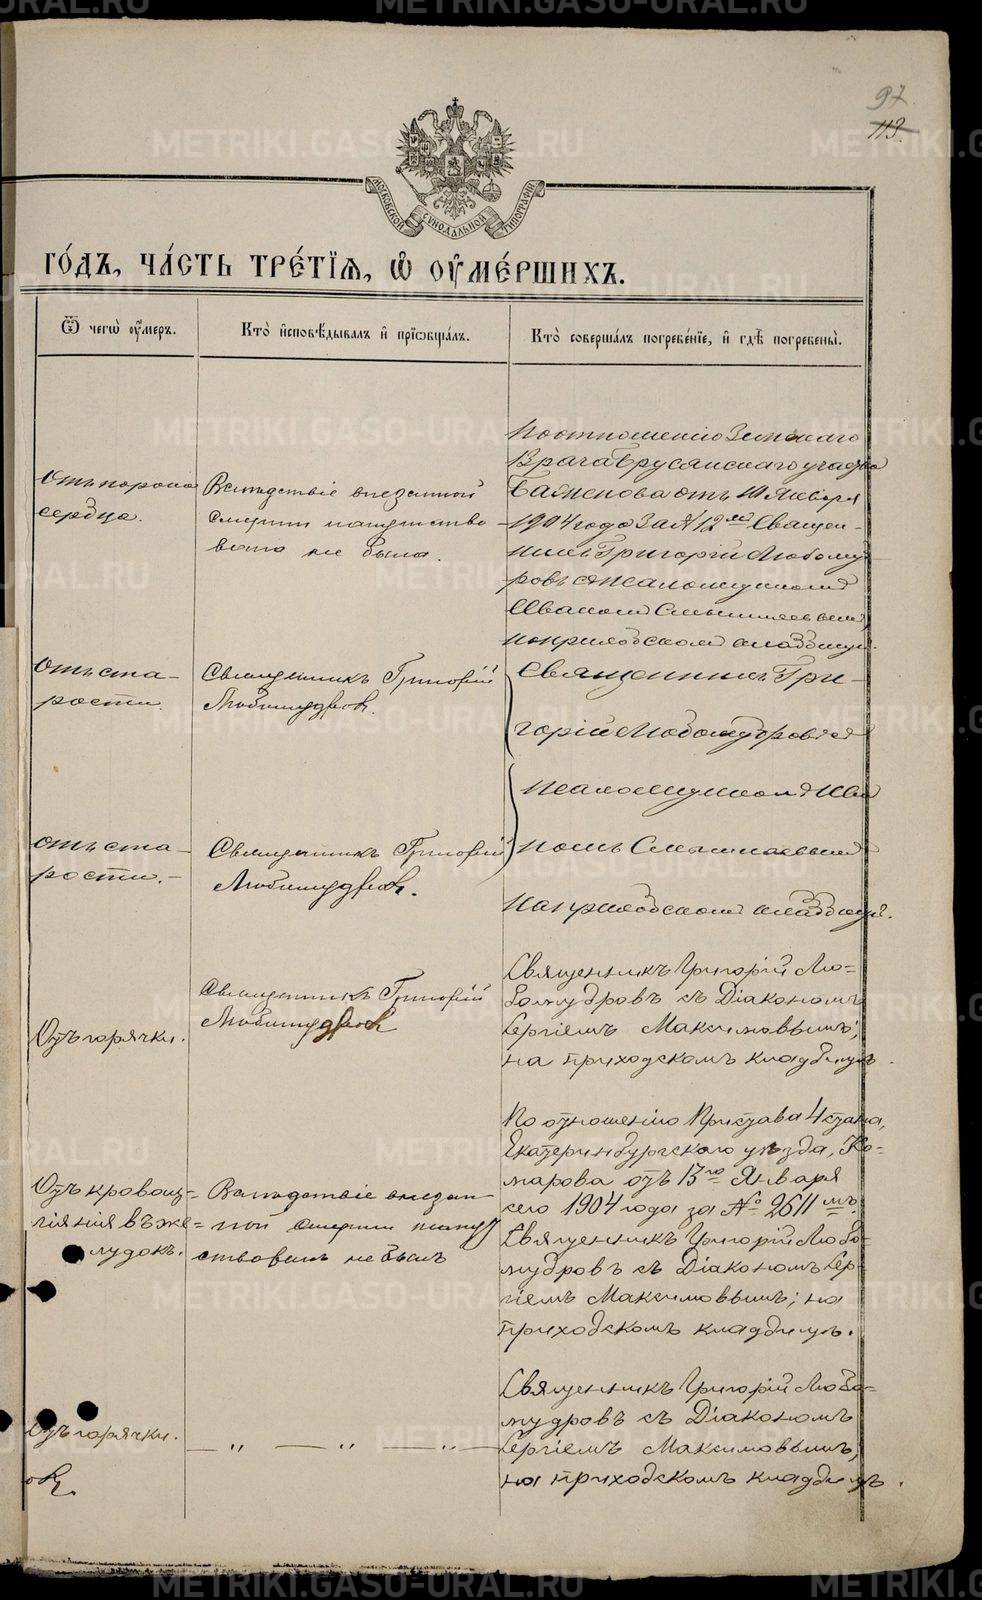 97
113.
МОСКОВСКОЙ СУНОДАЛЬНОЙ ТИПОГРАФИИ
ГО́ДЪ, ЧА́СТЬ ТРЕ́ТІѦ, Ѡ҆ ОУ҆МЕ́РШИХЪ.
Ѿ чегѡ̀ оу҆́меръ.
Кто̀ и҆сповѣ́дывалъ и҆ прїѡбща́лъ.
Кто̀ соверша́лъ погребе́нїе, и҆ гдѣ̀ погребены̀.
Отъ порока
сердца.
Вслѣдствіе внезапной
смерти напутство
вано не было.
По отношенію Земскаго
Врача Брусянскаго участка
отъ 10 Января
1904 года за № 12мъ Священ-
никъ Григорій Любомуд
ровъ съ Псаломщикомъ
Иваномъ Смышляевымъ,
на приходскомъ кладбищѣ.
отъ ста-
рости.
Священникъ Григорій
Любомудровъ.
Священникъ Гри-
горій Любомудровъ съ
Псаломщикомъ Ива
номъ Смышляевымъ
на приходскомъ кладбищѣ.
отъ ста-
рости.-
Священникъ Григорій
Любомудровъ.
Отъ горячки.
Священникъ Григорій
Любомудровъ
Священникъ Григорій Лю-
бомудровъ съ Діакономъ
Сергіемъ Максимовымъ;
на приходскомъ кладбищѣ.
Отъ кровоиз-
ліянія въ же-
лудокъ.
Вслѣдствіе внезап
ной смерти напут
ствованъ не былъ
По отношенію Пристава 4 стана,
Екатеринбургскаго уѣзда, Ко-
марова отъ 13го Января
сего 1904 года за № 2611мъ.
Священникъ Григорій Любо-
мудровъ съ Діакономъ Сер-
гіемъ Максимовымъ; на
приходскомъ кладбищѣ.
Отъ горячки.
— „ — „ — „ —
Священникъ Григорій Любо-
мудровъ съ Діакономъ
Сергіемъ Максимовымъ,
на приходскомъ кладбищѣ.
METRIKI.GASO-URAL.RU